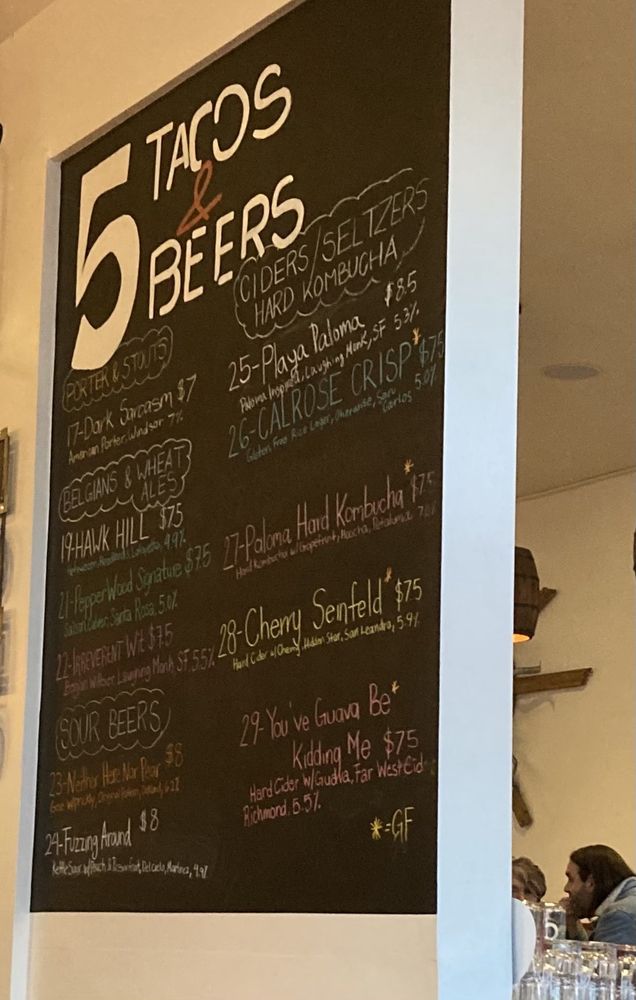 5 TACOS
&
BEERS
PORTER & STOUTS
17-Dark Sarcasm $7
American Porter, Windsor 7%
BELGIANS & WHEAT
ALES
19-HAWK HILL $75
Lafayette, 4.9%
21-PepperWood Signature $7.5
Santa Rosa, 5.0%
22-IRREVERENT Wit $7.5
Belgian Witbier, Laughing Monk, SF 5.5%
SOUR BEERS
23-Neither Here Nor Pear $8
Gose w/prickly
24-Fuzzing Around $8
Kettle Sour w/Peach & Martinez, 4.9%
CIDERS/SELTZERS
HARD KOMBUCHA
$8.5
25-Playa Paloma
Paloma Inspired, Laughing Monk, SF 5.3%
26-CALROSE CRISP* $7.5
Gluten Free Rice Lager, Otherwise, San
Carlos 5.0%
27-Paloma Hard Kombucha* $7.5
Hard Kombucha w/Grapefruit, Petaluma
28-Cherry Seinfeld* $75
Hard Cider w/Cherry, Hidden Star, San Leandro, 5.9%
29-You've Guava Be*
Kidding Me $75
Hard Cider w/Guava, Far West Cid
Richmond, 5.5%
*=GF
5